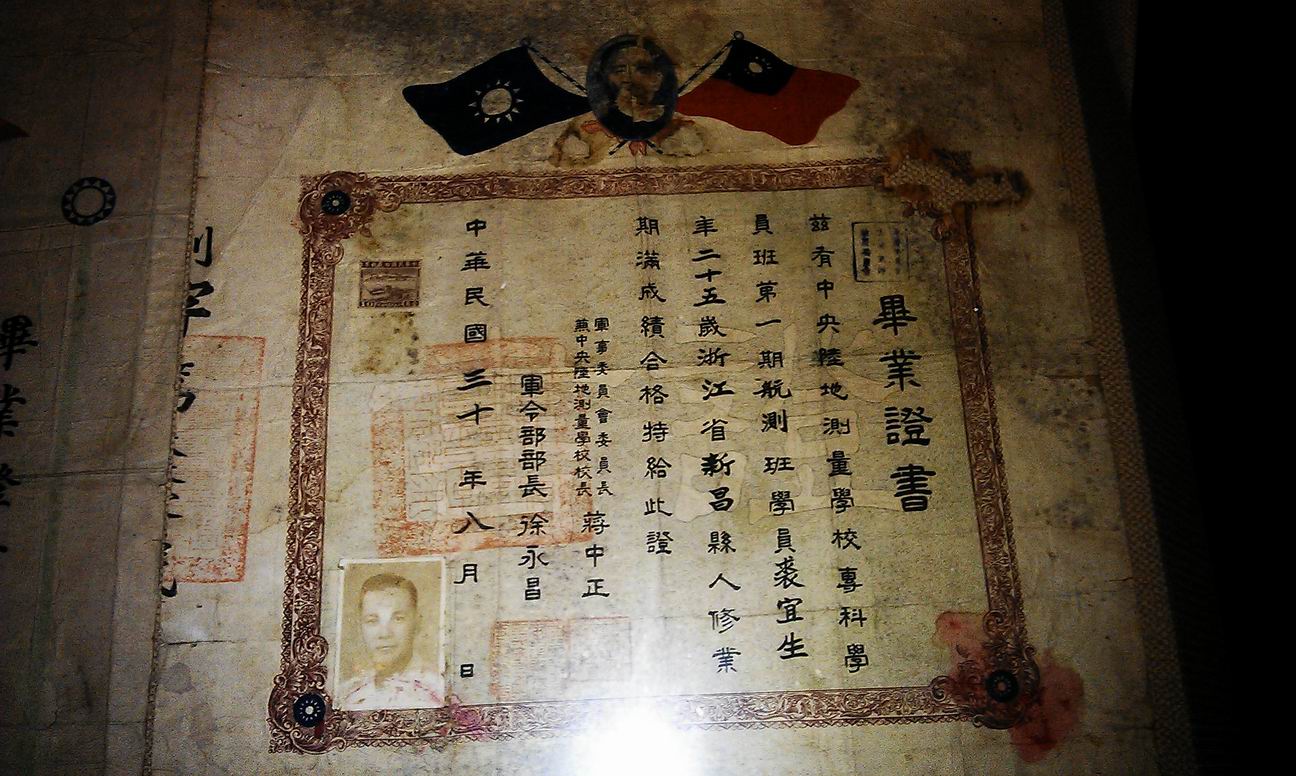 畢業證書
茲有中央陸地測量學校專科學
員班第一期航測班學員裘宜生
年二十五歲浙江省新昌縣人修業
期滿成績合格特給此證
軍事委員會委員長
兼中央陸地測量學校校長
蔣中正
軍令部部長徐永昌
中華民國三十年八月 日
字第
畢業證